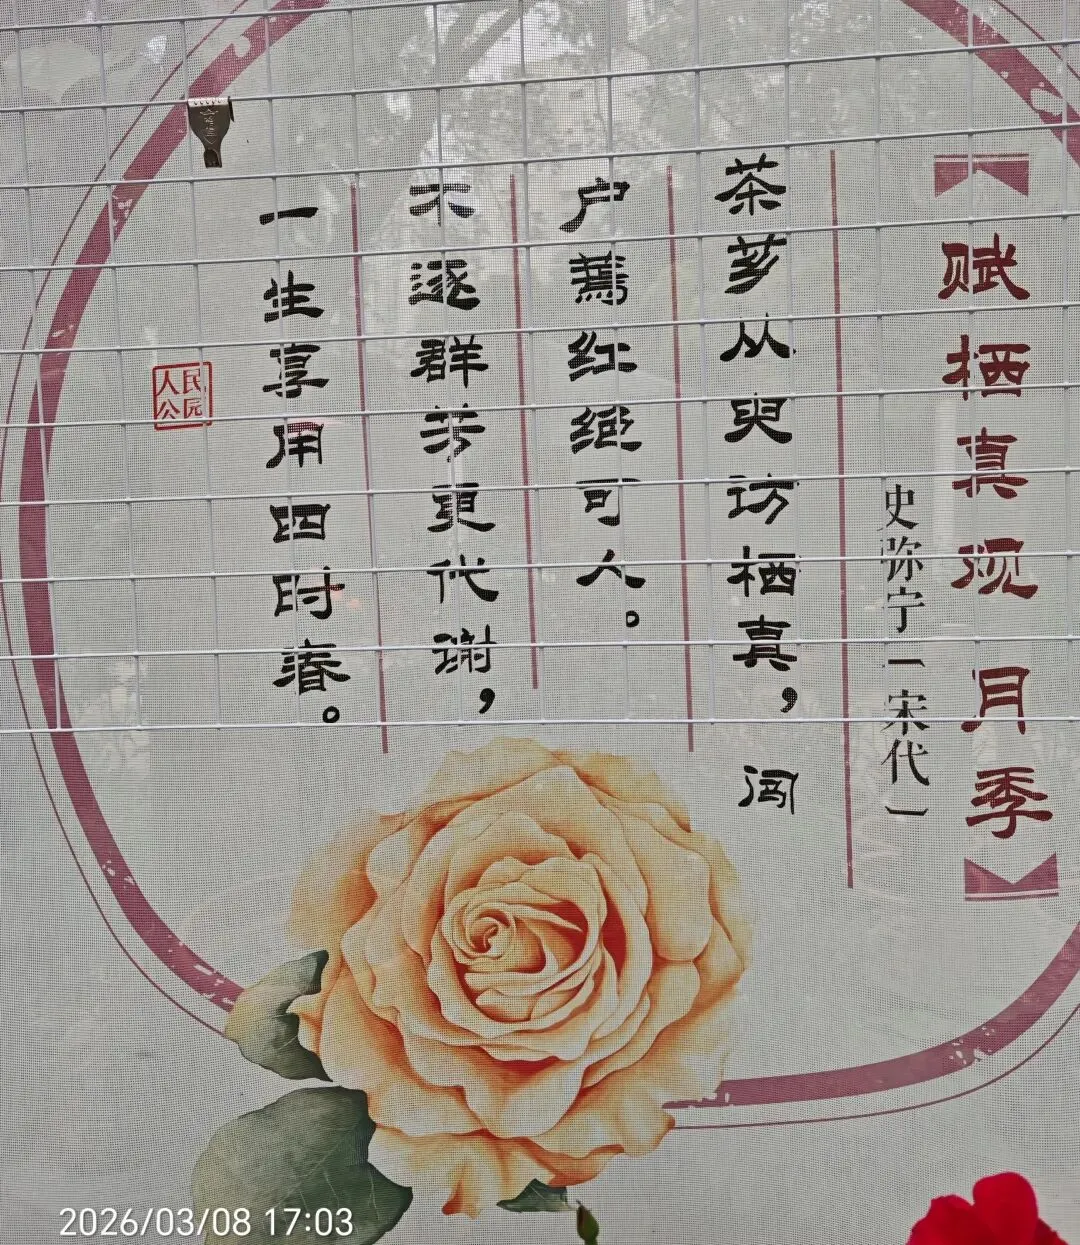 赋栖真观月季
史弥宁[宋代]
茶芗从臾访栖真，闯
户蔫红绝可人。
不逐群芳更代谢，
一生享用四时春。
人民
公园
2026/03/08 17:03